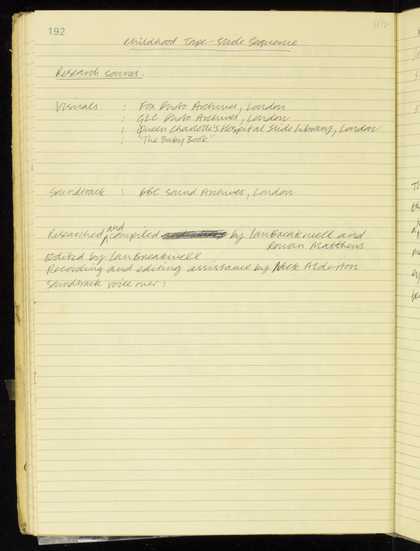 192
Childhood Tape-Slide Sequence
Research sources.
Visuals : Fox Photo Archives, London
: GLC Photo Archives, London
: Queen Charlotte's Hospital Slide Library, London
: "The Baby Book"
Soundtrack : BBC Sound Archives, London
Researched and compiled by Ian Breakwell and
Rowan Matthews
Edited by Ian Breakwell
Recording and editing assistance by Nick Alderton
Soundtrack voice over :